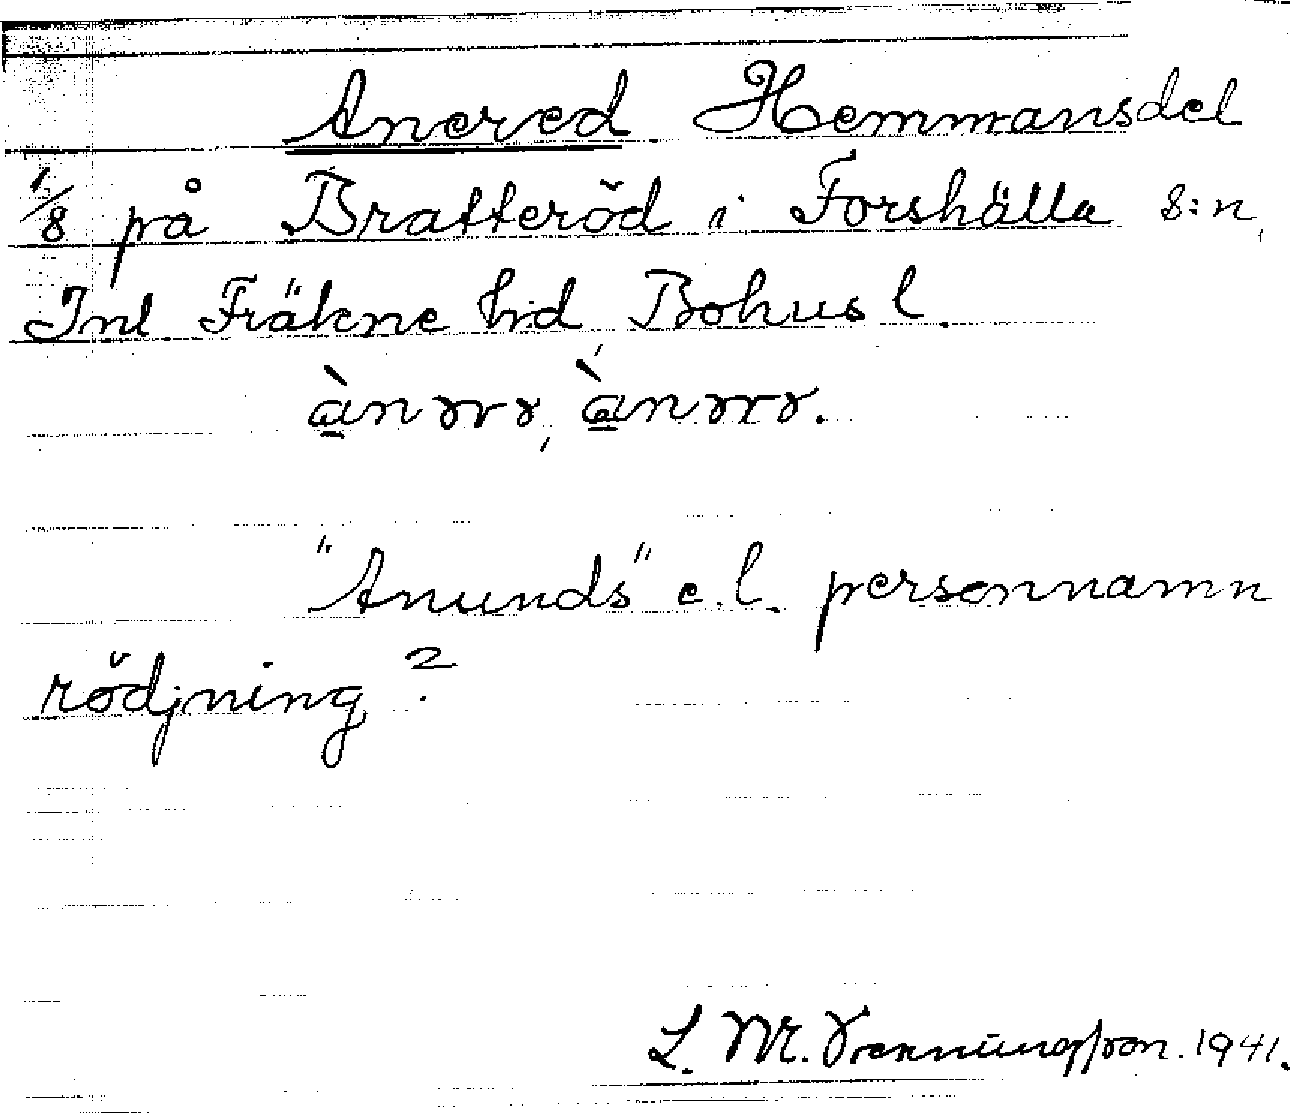 Anered Hemmansdel
1/8 på Bratteröd i Forshälla s:n,
Inl Fräkne hd Bohus l.
"Anunds" e.l. personnamn
rödjning?
L. M. 1941.